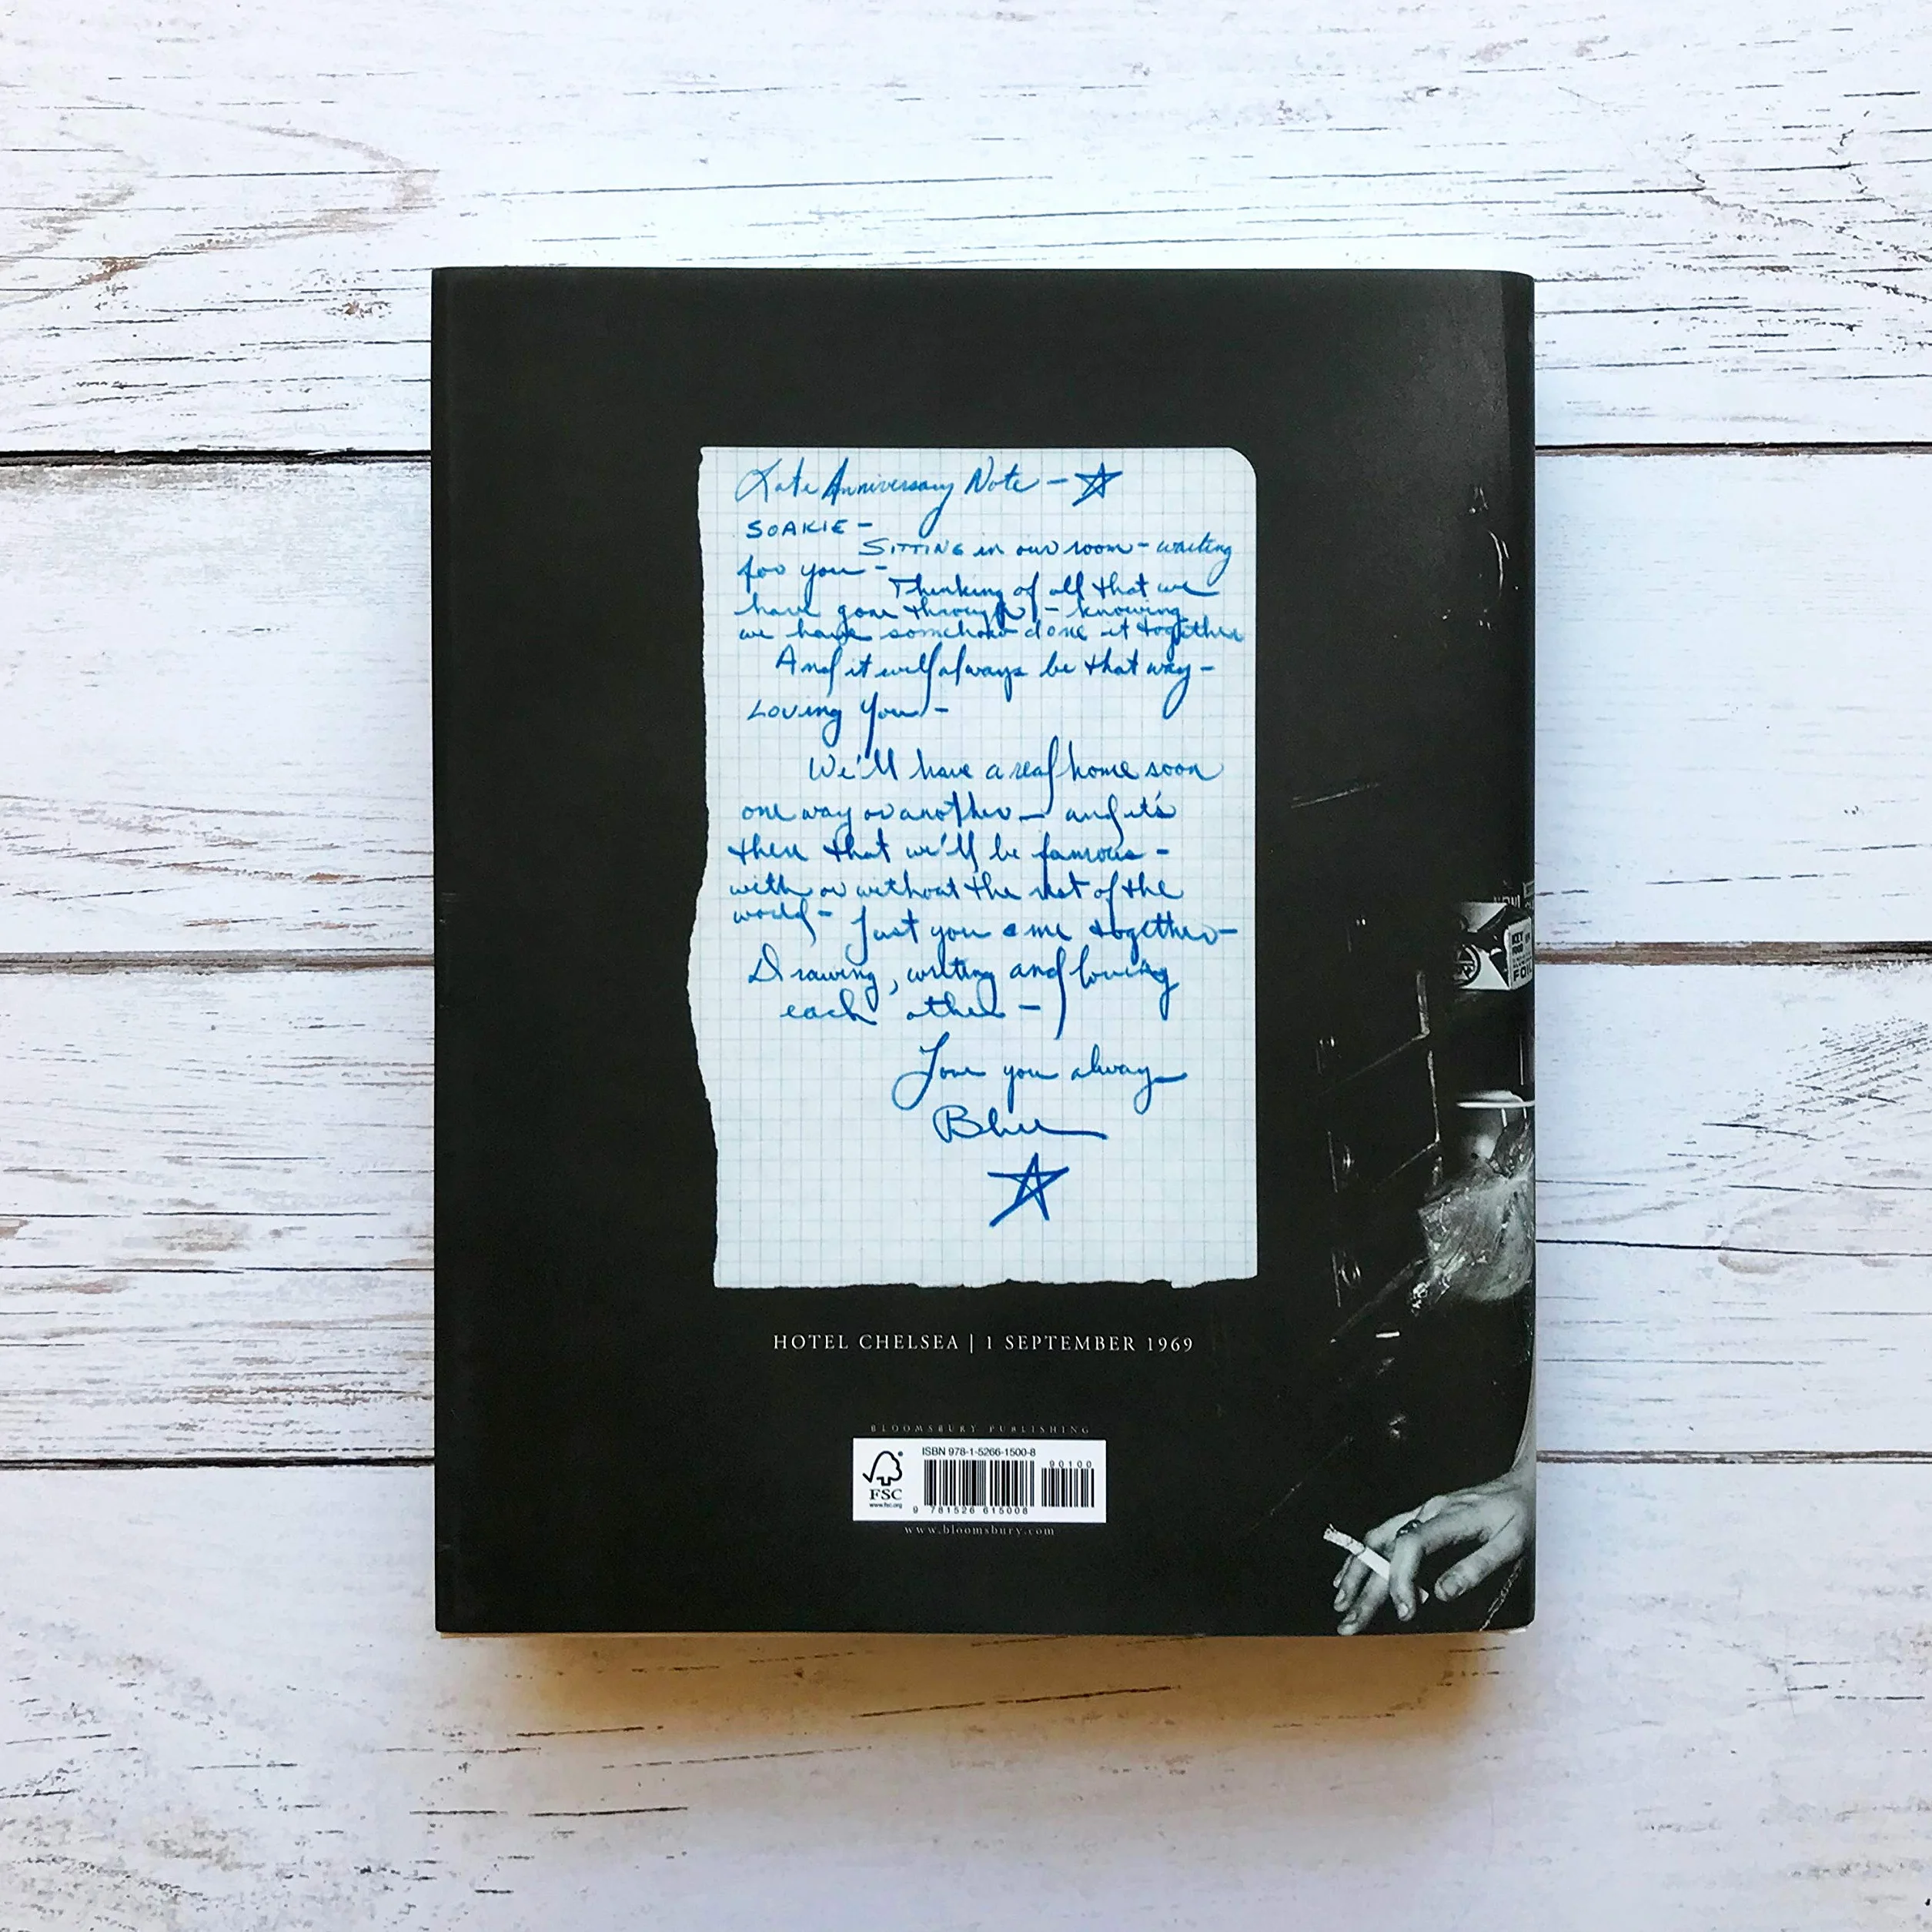 Late Anniversary Note - ☆
SOAKIE -
SITTING in our room - waiting
for you -
Thinking of all that we
have gone through - knowing
we have somehow done it together
And it will always be that way -
LOVING You -
We'll have a real home soon
one way or another - and it's
there that we'll be famous -
with or without the rest of the
world - Just you & me together -
Drawing, writing and loving
each other -
Love you always
Blue
☆
HOTEL CHELSEA | 1 SEPTEMBER 1969
BLOOMSBURY PUBLISHING
ISBN 978-1-5266-1500-8
90100
FSC
www.fsc.org
9 781526 615008
www.bloomsbury.com
KEY
FOIL